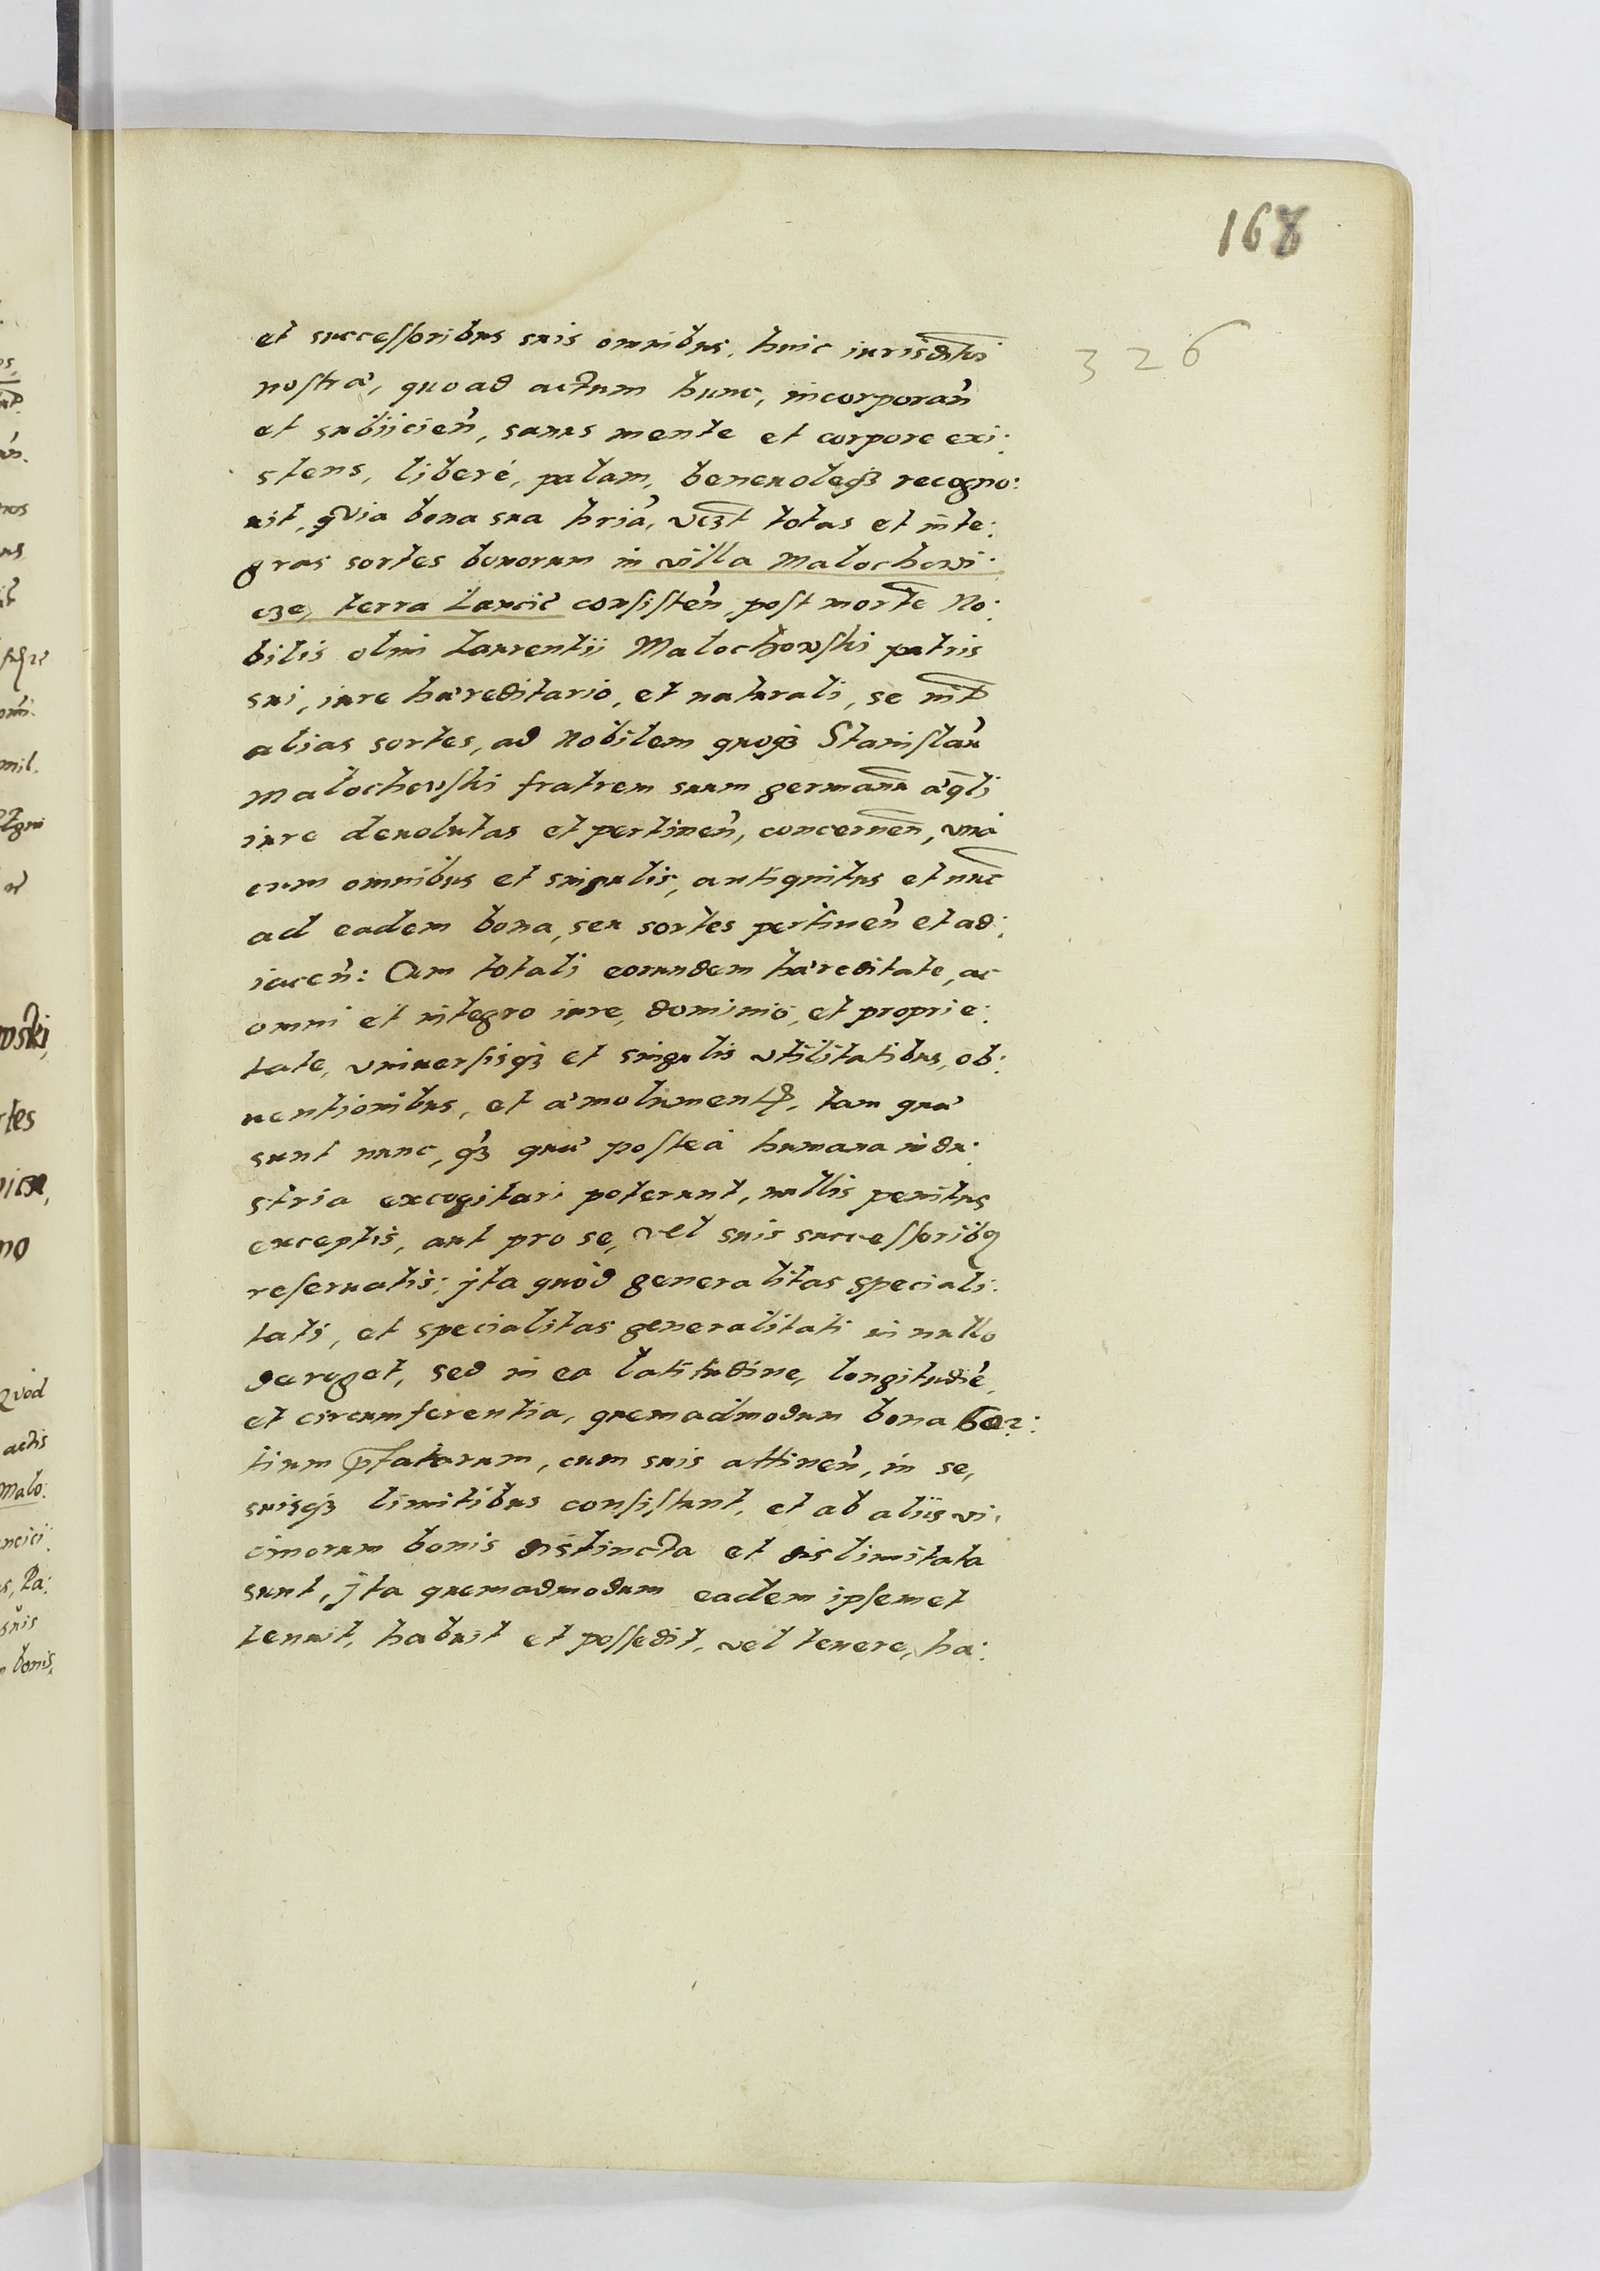 168
326
et successoribus suis omnibus, huic iurisdictni
nostræ, quoad actum hunc, incorporan̄
et subiicien̄, sanus mente et corpore exi:
stens, liberé, palam, beneuoleq3 recogno:
uit, quia bona sua hria, vczt totas et inte:
gras sortes bonorum in villa Malochowi:
cze, terra Lancic̄ consisten̄, post morte No:
bilis olim Laurentii Malochowski patris
sui, iure hæreditario, et naturali, se int̄
alias sortes, ad Nobilem quoq3 Stanislau
Malochowski fratrem suum germanū æq̄li
iure deuolutas et pertinen̄, concernen̄, vná
cum omnibus et singulis, antiquitus et nūc
ad eadem bona, seu sortes pertinen̄ et ad:
iacen̄: Cum totali eorundem hæreditate, ac
omni et integro iure, dominio, et proprie:
tate, vniuersisq3 et singulis vtilitatibus, ob:
uentionibus, et æmolument̄, tam quæ
sunt nunc, q3 quæ posteá humana indu:
stria excogitari poterunt, nullis penitus
exceptis, aut pro se, vel suis successoribq
reseruatis: jta quòd generalitas speciali:
tati, et specialitas generalitati in nullo
deroget, sed in ea latitudine, longitudīe,
et circumferentia, quemadmodum bona
tium pfatarum, cum suis attinen̄, in se,
suisq3 limitibus consistunt, et ab aliis vi:
cinorum bonis distincta et dislimitata
sunt, jta quemadmodum eadem ipsemet
tenuit, habuit et possedit, vel tenere, ha: